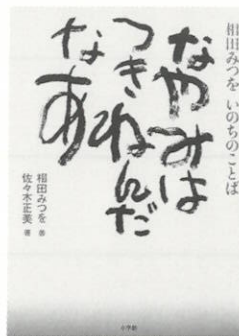 相田みつを いのちのことば
なやみは
つきねんだ
なあ
相田みつを 書
佐々木正美 著
小学館